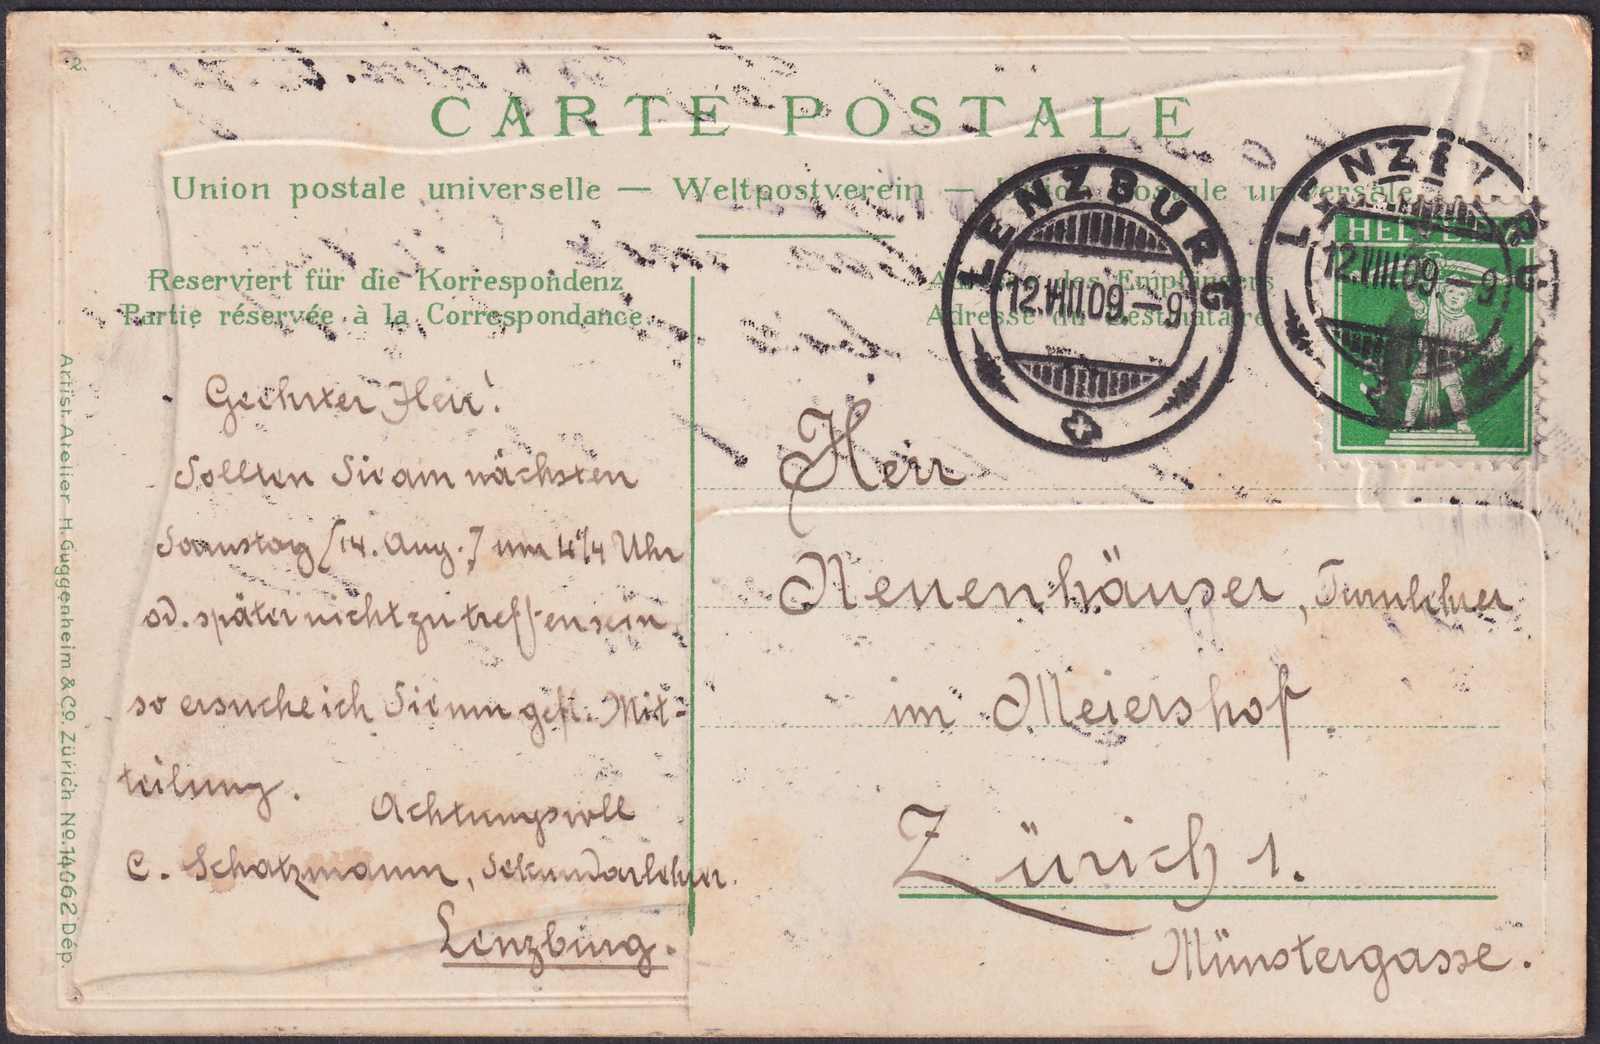 CARTE POSTALE
Union postale universelle — Weltpostverein — Union postale universale
Reserviert für die Korrespondenz
Partie réservée à la Correspondance
Adresse des Empfängers
Adresse du Destinataire
LENZBURG
12.VIII.09.–9
LENZBURG
12.VIII.09.–9
HELVETIA
Geehrter Herr!
Sollten Sie am nächsten
Samstag [14. Aug.] um 4 1/4 Uhr
od. später nicht zu treffen sein
so ersuche ich Sie um gefl. Mit-
teilung.
Achtungsvoll
C. Schatzmann, Sekundarlehrer.
Lenzburg.
Herr
Neuenhäuser, Turnlehrer
im Meiershof
Zürich 1.
Münstergasse.
Artist. Atelier H. Guggenheim & Co. Zürich No. 14062 Dép.